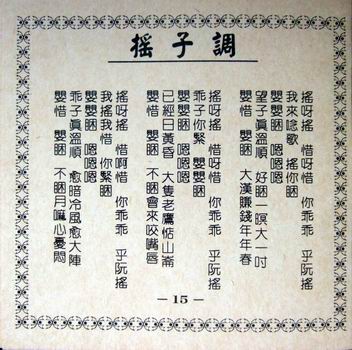 搖子調
搖呀搖　惜呀惜　你乖乖　乎阮搖
我來唸歌　搖你睏
嬰嬰睏　嗯嗯嗯
望子真溫順　好睏一暝大一吋
嬰惜　嬰睏　大漢賺錢年年春
搖呀搖　惜呀惜　你乖乖　乎阮搖
乖子你緊　嬰嬰睏
嬰嬰睏　嗯嗯嗯
已經日黃昏　大隻老鷹惦山崙
嬰惜　嬰睏　不睏會來咬嘴唇
搖呀搖　惜啊惜　你乖乖　乎阮搖
我搖我惜　你緊睏
嬰嬰睏　嗯嗯嗯
乖子真溫順　愈暗冷風愈大陣
嬰惜　嬰睏　不睏月嘛心憂悶
－15－